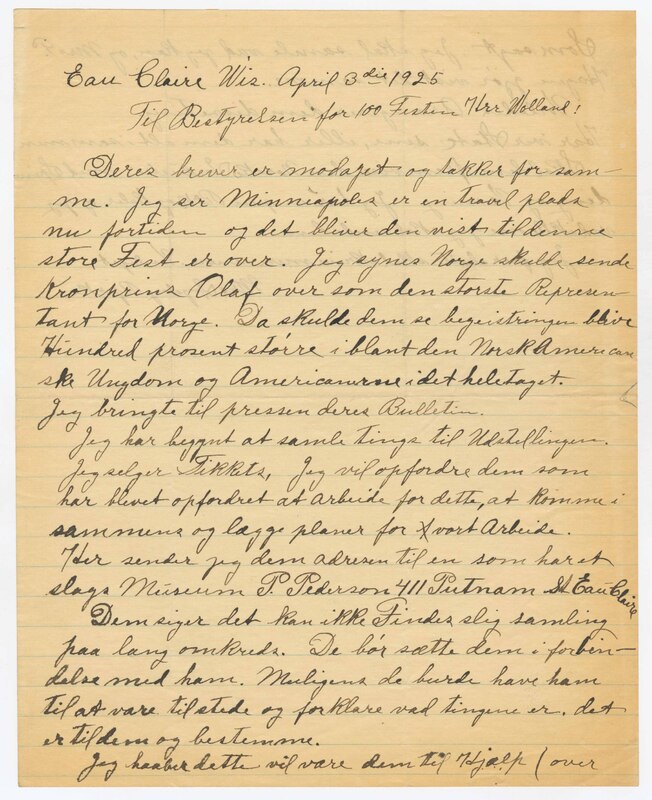 Eau Claire Wis. April 3die 1925
Til Bestyrelsen for 100 Festen Hrr Wolland!
Deres brever er modaget og takker for sam-
me. Jeg ser Minneapoles er en travel plads
nu fortiden og det bliver den vist til denne
store Fest er over. Jeg synes Norge skulde sende
Kronprins Olaf over som den storste Represen
tant for Norge. Da skulde dem se begeistringen blive
Hundred prosent större i blant den Norsk American
ske Ungdom og Americanerne i det heletaget.
Jeg bringte til pressen deres Bulletin.
Jeg har begynt at samle tings til Udstellingen.
Jeg selger Tikkets, Jeg vil opfordre dem som
har blivet opfordret at arbeide for dette, at komme i
sammens og lægge planer for vort Arbeide.
Her sender jeg dem adresen til en som har et
slags Museum P. Pederson 411 Putnam St Eau Claire
Dem siger det kan ikke Findes slig samling
paa lang omkreds. De bör sætte dem i forbin-
delse med ham. Muligens de burde have ham
til at være tilstede og forklare vad tingene er. det
er til dem og bestemme.
Jeg haaber dette vil være dem til Hjælp (over